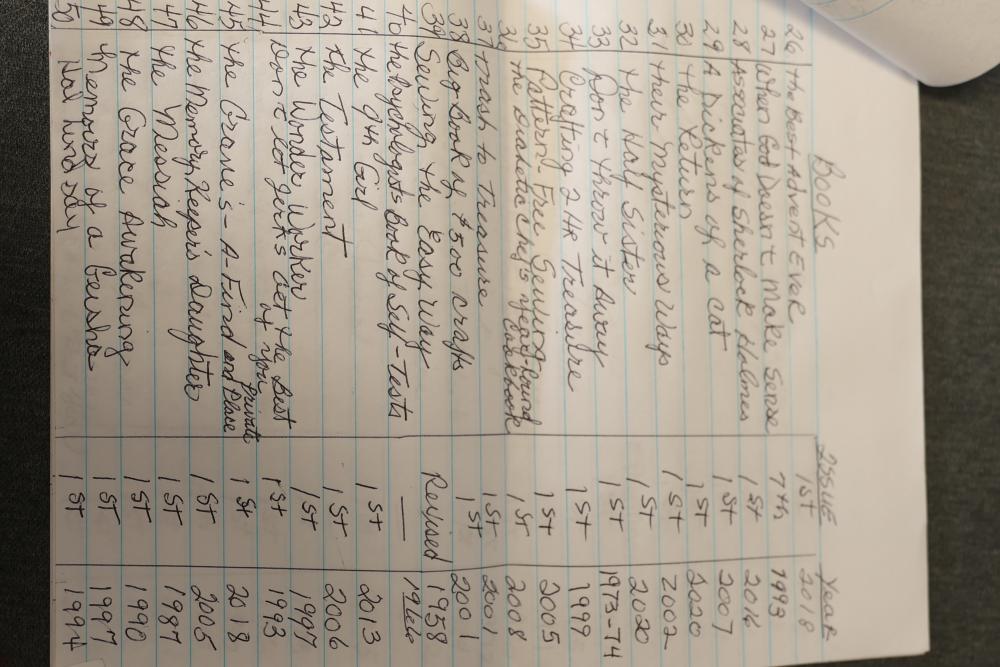 Books ISSUE Year
26 The Best Advent Ever 1st 2018
27 When God Doesn't Make Sense 7th 1993
28 Associates of Sherlock Holmes 1st 2016
29 A Dickens of a Cat 1st 2007
30 The Return 1st 2020
31 Their Mysterious Ways 1st 2002
32 The Half Sister 1st 2020
33 Don't Throw it Away 1st 1973-74
34 Crafting 2 HR Treasure 1st 1999
35 Pattern-Free Sewing 1st 2005
36 The Diabetic Chef's Year-Round Cookbook 1st 2008
37 Trash to Treasure 1st 2001
38 Big Book of $500 crafts 1st 2001
39 Sewing the Easy Way Revised 1958
40 The Psychologists Book of Self-Tests — 1966
41 The 9th Girl 1st 2013
42 The Testament 1st 2006
43 The Wonder Worker 1st 1997
44 Don't let Jerks Get the Best of you 1st 1993
45 The Grave's - A Find and Private Place 1st 2018
46 The Memory Keeper's Daughter 1st 2005
47 The Messiah 1st 1987
48 The Grace Awakening 1st 1990
49 Memoirs of a Geisha 1st 1997
50 Day 1st 1994